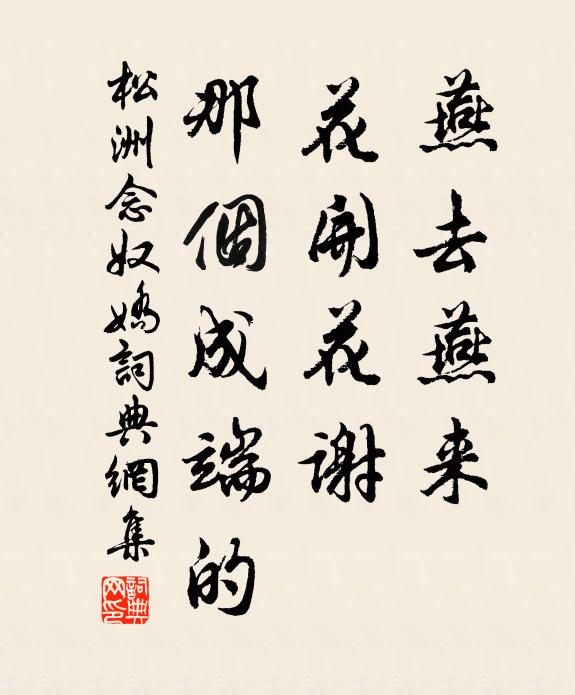 燕去燕来
花開花谢
那個成端的
松洲念奴嬌詞典網集
詞典网印